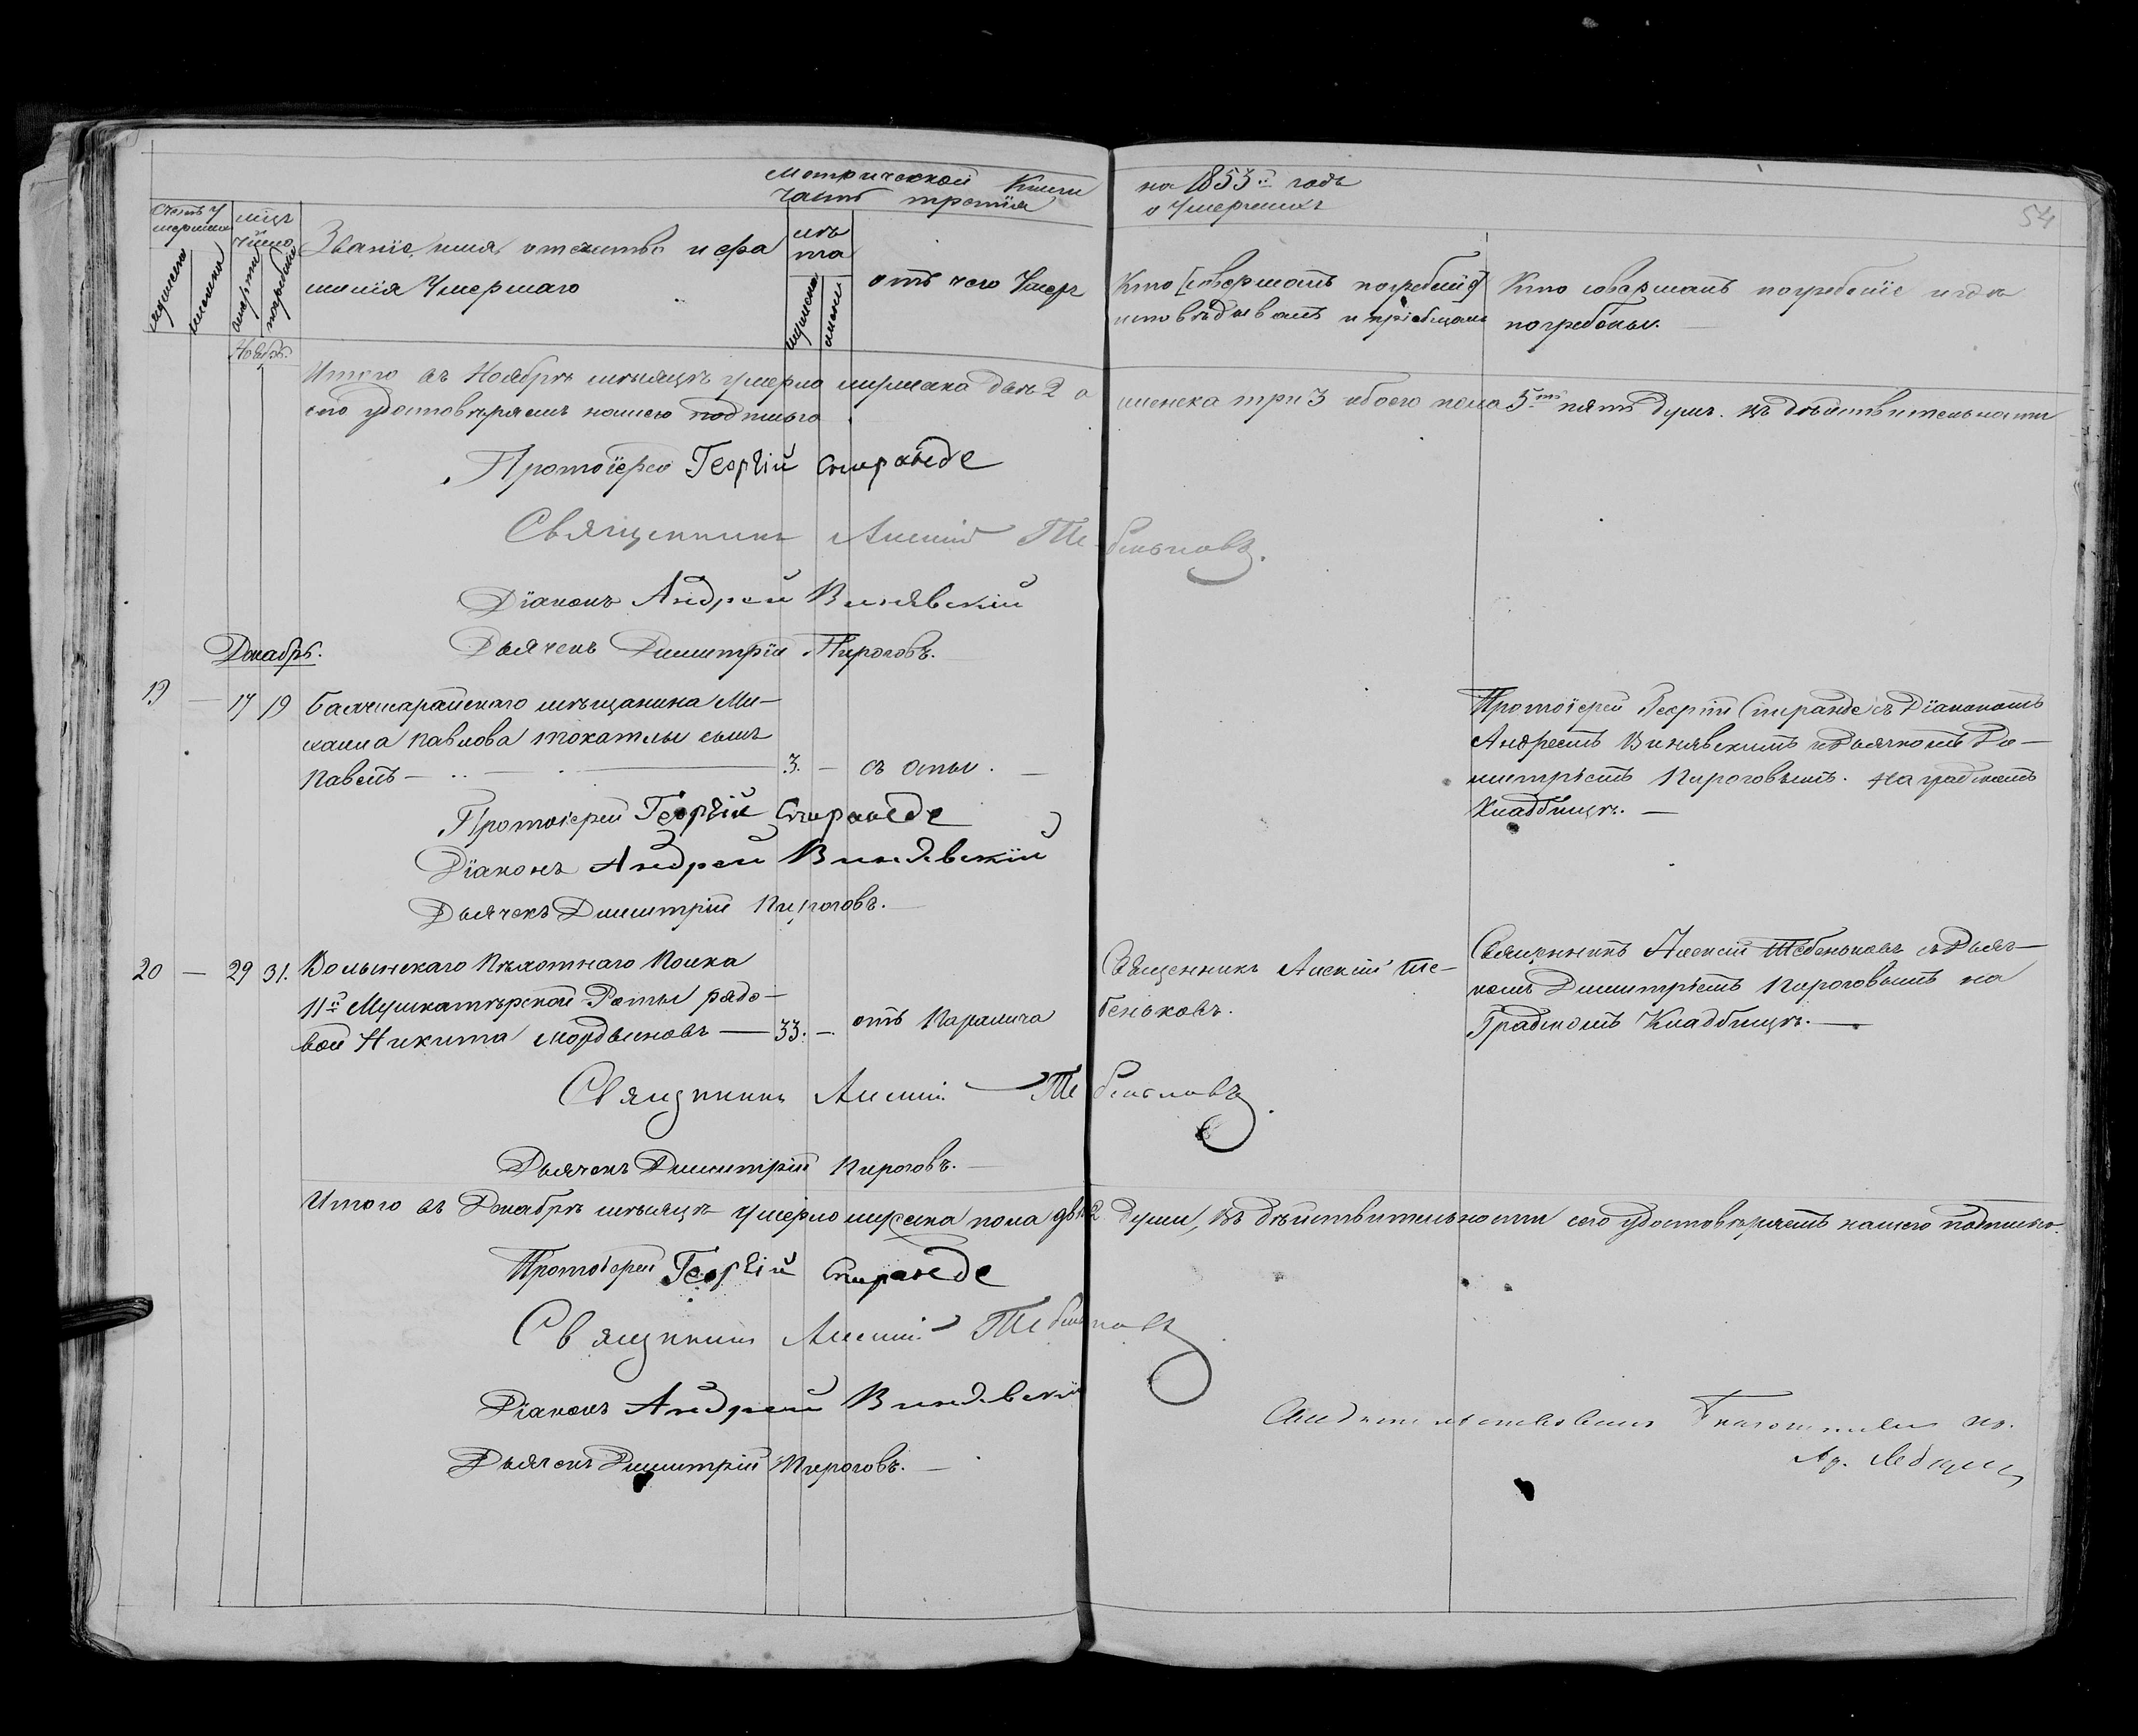 Метрической Книги на 1853й годъ
Часть третия о Умершихъ
54
Счетъ у
мершихъ
мужеска
женска
мцъ
и
число
смерти
погребенія
Званіе, имя, отечество и фа
милія Умершаго
лѣ
та
мужеска
женска
отъ чего Умеръ
Кто [совершалъ погребеніе]
исповѣдывалъ и пріобщалъ
Кто совершалъ погребеніе и гдѣ
погребены.
Ноябрь.
Итого въ Ноябрѣ мѣсяцѣ умерло мужеска двѣ 2 а женска три 3 обоего пола 5ть пять душъ. въ дѣйствительности
сего удостовѣряемъ нашею подписью
Протоіерей Георгій Спиранде
Священникъ Алексій Тебеньковъ.
Діаконъ Андрей Винявскій
Дьячекъ Димитрій Пироговъ.
Декабрь.
19 — 17 19 Бахчисарайскаго мѣщанина Ми-
хаила Павлова Токатлы сынъ
Павелъ — 3. — съ оспы. —
Протоіерей Георгій Спиранде съ Діакономъ
Андреемъ Винявскимъ и Дьячкомъ Ди-
митріемъ Пироговымъ. на градскомъ
Кладбищѣ. —
Протоіерей Георгій Спиранде
Діаконъ Андрей Винявскій
Дьячекъ Димитрій Пироговъ. —
20 — 29 31. Волынскаго Пѣхотнаго Полка
11й Мушкатѣрской Роты рядо-
вой Никита Мордвиновъ — 33. — отъ Паралича
Священникъ Алексій Те-
беньковъ.
Священникъ Алексій Тебеньковъ съ Дьяч-
комъ Димитріемъ Пироговымъ на
Градскомъ Кладбищѣ. —
Священникъ Алексій Тебеньковъ.
Дьячекъ Димитрій Пироговъ. —
Итого въ Декабрѣ мѣсяцѣ умерло мужска пола двѣ 2 души, въ дѣйствительности сего удостовѣряемъ нашею подписью.
Протоіерей Георгій Спиранде
Священникъ Алексій Тебеньковъ
Діаконъ Андрей Винявскій
Дьячекъ Димитрій Пироговъ. —
Свидетельствовалъ